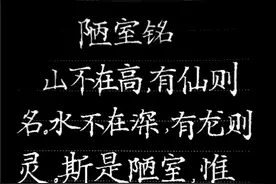 陋室铭
山不在高,有仙则
名。水不在深,有龙则
灵。斯是陋室,惟